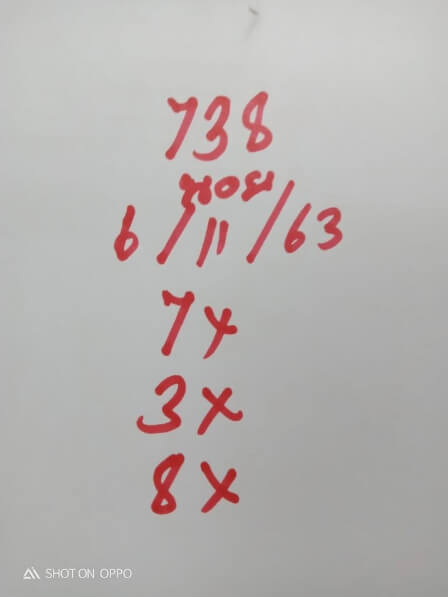 738
ฆอย
6/11/63
7x
3x
8x
SHOT ON OPPO